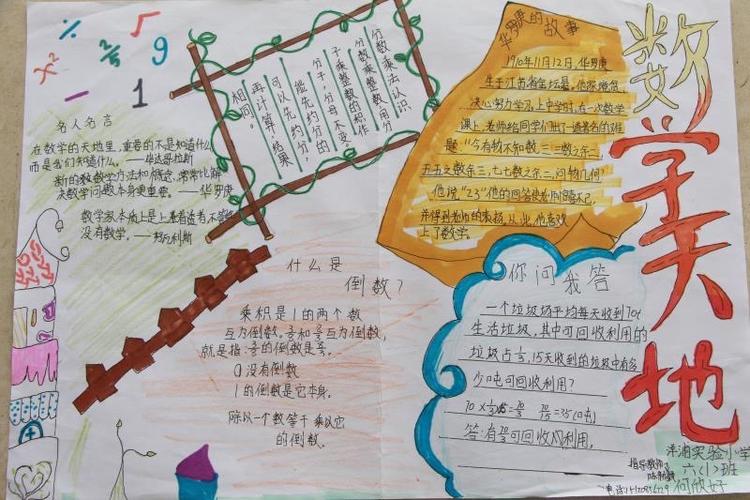 数学天地
÷ √ x² 9
− 1
名人名言
在数学的天地里，重要的不是知道什么
而是我们知道什么。——毕达哥拉斯
新的数学方法和概念，常常比解
决数学问题本身更重要。——华罗庚
数学家本质上是个着迷者，不
没有数学。——努瓦利斯
分数乘法认识
分数乘整数，用分
子乘整数的积作
分子，分母不变。
能先约分的
可以先约分，
再计算，结果
相同。
华罗庚的故事
1910年11月12日，华罗庚
生于江苏省金坛县。他家境贫
决心努力学习。上中学时，在一次数学
课上，老师给同学们出了一道著名的难
题“今有物不知数，三三数之余二，
五五之数余三，七七数之余二，问物几何？
他说“23”他的回答
并得到老师的表扬，从此，他喜欢
上了数学。
什么是
倒数？
乘积是1的两个数
互为倒数。和互为倒数，
就是指：的倒数是
0没有倒数
1的倒数是它本身。
除以一个数等于乘以它
的倒数。
你问我答
一个垃圾场平均每天收到70t
生活垃圾，其中可回收利用的
垃圾占，15天收到的垃圾中有多
少吨可回收利用？
70×
答：有可回收利用。
洋浦实验小学
指导教师：
六（1）班
何欣好